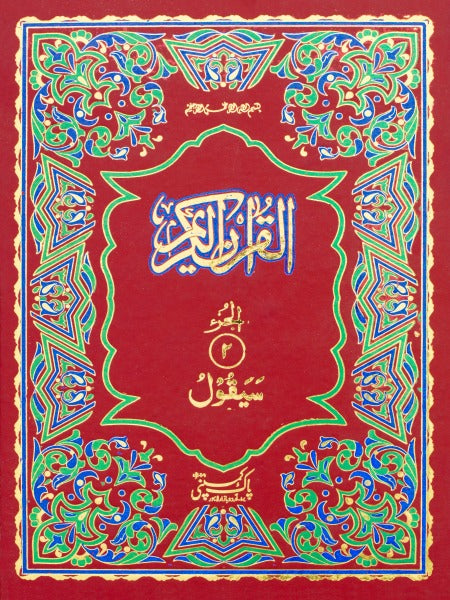 بسم الله الرحمن الرحيم
القرآن الكريم
الجزء
٢
سَيَقُوْلُ
پاک کمپنی